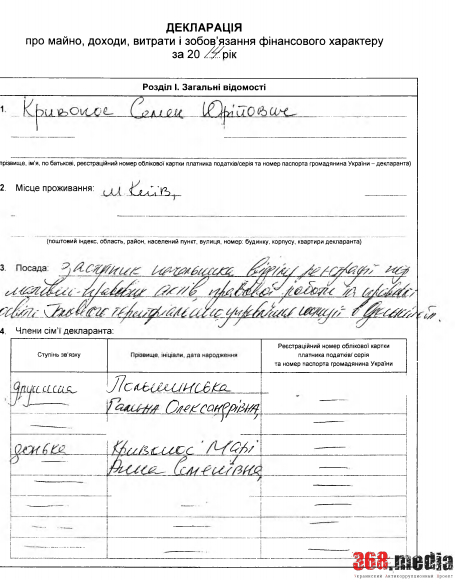 ДЕКЛАРАЦІЯ
про майно, доходи, витрати і зобов'язання фінансового характеру
за 2014 рік
Розділ I. Загальні відомості
1. Кривонос Семен Юрійович
(прізвище, ім'я, по батькові, реєстраційний номер облікової картки платника податків/серія та номер паспорта громадянина України – декларанта)
2. Місце проживання: м. Київ,
(поштовий індекс, область, район, населений пункт, вулиця, номер: будинку, корпусу, квартири декларанта)
3. Посада: заступник начальника відділу реєстрації нор
мативно-правових актів, правової роботи та правової
освіти територіального управління юстиції в
4. Члени сім'ї декларанта:
Ступінь зв'язку
Прізвище, ініціали, дата народження
Реєстраційний номер облікової картки
платника податків/серія
та номер паспорта громадянина України
дружина
Галина Олександрівна,
донька Кривонос Марі
Анна Семенівна,
368.media
Украинский антикоррупционный проект